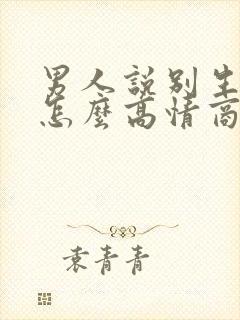 男人說別生
怎麼高情商
袁青青